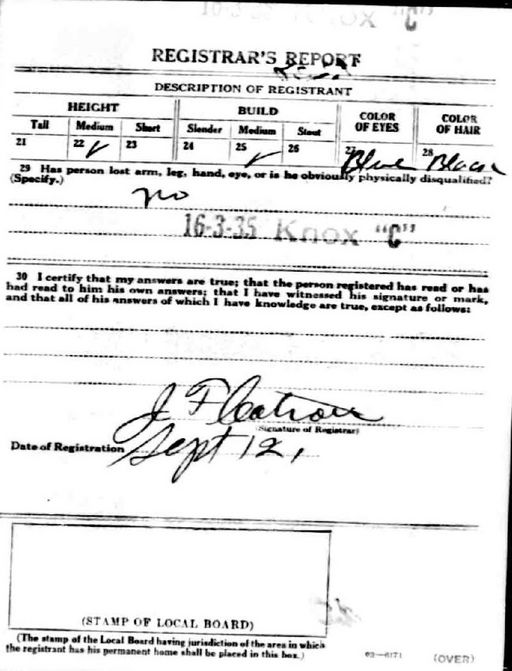 "C"
REGISTRAR'S REPORT
DESCRIPTION OF REGISTRANT
HEIGHT BUILD COLOR OF EYES COLOR OF HAIR
Tall Medium Short Slender Medium Stout
21 22 ✓ 23 24 25 ✓ 26 27 Blue 28 Black
29 Has person lost arm, leg, hand, eye, or is he obviously physically disqualified?
(Specify.)
no
16-3-35 Knox "C"
30 I certify that my answers are true; that the person registered has read or has
had read to him his own answers; that I have witnessed his signature or mark,
and that all of his answers of which I have knowledge are true, except as follows:
J F Catron
(Signature of Registrar)
Date of Registration Sept 12,
(STAMP OF LOCAL BOARD)
(The stamp of the Local Board having jurisdiction of the area in which
the registrant has his permanent home shall be placed in this box.)
(OVER)